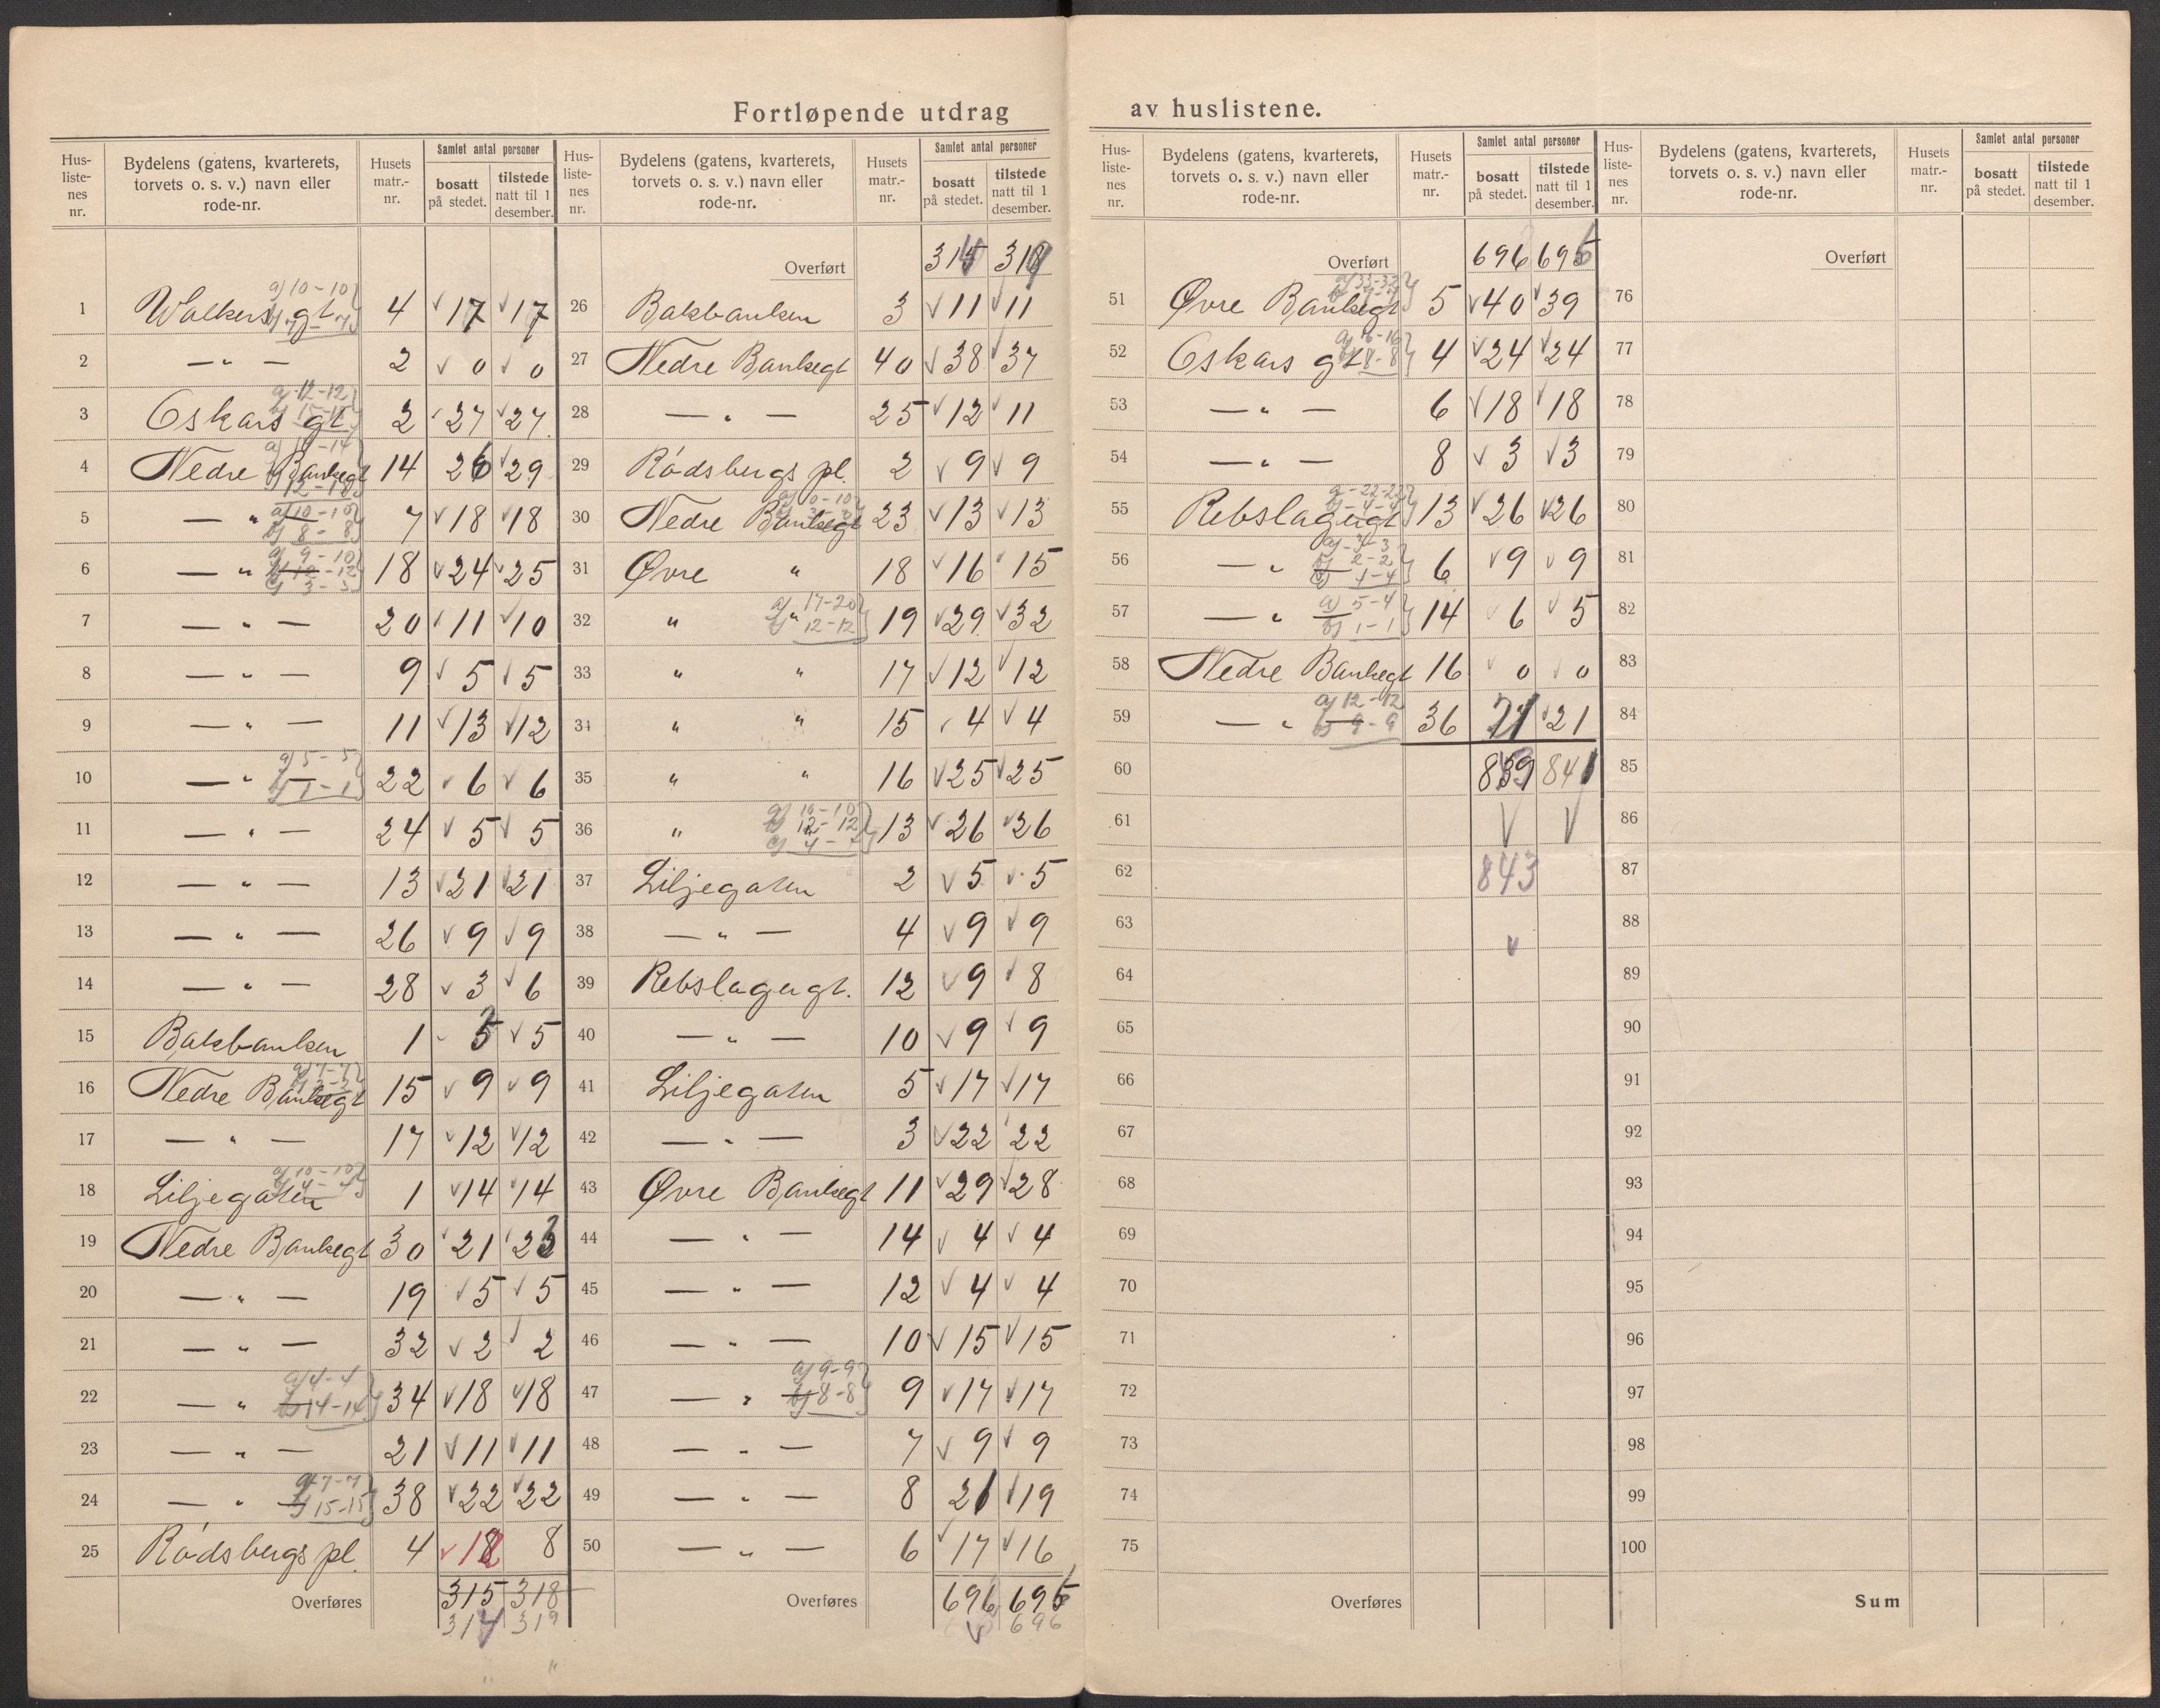 Fortløpende utdrag av huslistene.
Hus-listenes nr. | Bydelens (gatens, kvarterets, torvets o. s. v.) navn eller rode-nr. | Husets matr.-nr. | Samlet antal personer | bosatt på stedet. | tilstede natt til 1 desember.
1 Walkers gt. a) 10-10 4 17 17
2 — " — 2 0 0
3 Oskars gt. a) 12-12 b) 15-15 2 27 27
4 Nedre Bankegt 14 26 29
5 — " a) 10-10 b) 8-8 7 18 18
6 — " a) 9-10 b) 12-12 c) 3-3 18 24 25
7 — " — 20 11 10
8 — " — 9 5 5
9 — " — 11 13 12
10 — " a) 5-5 b) 1-1 22 6 6
11 — " — 24 5 5
12 — " — 13 21 21
13 — " — 26 9 9
14 — " — 28 3 6
15 Bakbanken 1 5 5
16 Nedre Bankegt 15 9 9
17 — " — 17 12 12
18 Liljegaten a) 10-10 b) 4-4 1 14 14
19 Nedre Bankegt 30 21 23
20 — " — 19 5 5
21 — " — 32 2 2
22 — " a) 4-4 b) 14-14 34 18 18
23 — " — 21 11 11
24 — " a) 7-7 b) 15-15 38 22 22
25 Rødsbergs pl. 4 18 8
Overføres 315 318
317 319
Hus-listenes nr. | Bydelens (gatens, kvarterets, torvets o. s. v.) navn eller rode-nr. | Husets matr.-nr. | Samlet antal personer | bosatt på stedet. | tilstede natt til 1 desember.
Overført 315 318
26 Bakbanken 3 11 11
27 Nedre Bankegt 40 38 37
28 — " — 25 12 11
29 Rødsbergs pl. 2 9 9
30 Nedre Bankegt a) 10-10 b) 3-3 23 13 13
31 Øvre " 18 16 15
32 " " a) 17-20 b) 12-12 19 29 32
33 " " 17 12 12
34 " " 15 4 4
35 " " 16 25 25
36 " a) 10-10 b) 12-12 c) 4-4 13 26 26
37 Liljegaten 2 5 5
38 — " — 4 9 9
39 Rebslagergt. 12 9 8
40 — " — 10 9 9
41 Liljegaten 5 17 17
42 — " — 3 22 22
43 Øvre Bankegt 11 29 28
44 — " — 14 4 4
45 — " — 12 4 4
46 — " — 10 15 15
47 — " a) 9-9 b) 8-8 9 17 17
48 — " — 7 9 9
49 — " — 8 21 19
50 — " — 6 17 16
Overføres 696 695
696
Hus-listenes nr. | Bydelens (gatens, kvarterets, torvets o. s. v.) navn eller rode-nr. | Husets matr.-nr. | Samlet antal personer | bosatt på stedet. | tilstede natt til 1 desember.
Overført 696 695
51 Øvre Bankegt a) 33-32 b) 7-7 5 40 39
52 Oskars gt a) 16-16 b) 8-8 4 24 24
53 — " — 6 18 18
54 — " — 8 3 3
55 Rebslagergt a) 22-22 b) 4-4 13 26 26
56 — " a) 3-3 b) 2-2 c) 4-4 6 9 9
57 — " a) 5-4 b) 1-1 14 6 5
58 Nedre Bankegt 16 0 0
59 — " a) 12-12 b) 9-9 36 21 21
60 839 841
61
62 843
63
64
65
66
67
68
69
70
71
72
73
74
75
Overføres
Hus-listenes nr. | Bydelens (gatens, kvarterets, torvets o. s. v.) navn eller rode-nr. | Husets matr.-nr. | Samlet antal personer | bosatt på stedet. | tilstede natt til 1 desember.
Overført
76
77
78
79
80
81
82
83
84
85
86
87
88
89
90
91
92
93
94
95
96
97
98
99
100
Sum